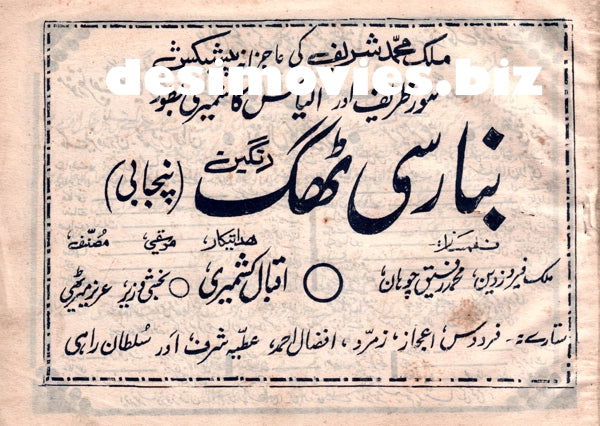 ملک محمد شریف کی عاجزانہ پیشکش
desimovies.biz
منور ظریف اور الیاس کاشمیری بطور
بنارسی ٹھگ رنگین (پنجابی)
نغمہ نگار ہدایتکار، موسیقی، مصنف،
ملک فیروزدین، محمد رفیق چوہان، اقبال کشمیری، بخشی وزیر، عزیز میرٹھی
ستارے:۔ فردوس، اعجاز، زمرد، افضال احمد، عطیہ شرف اور سلطان راہی